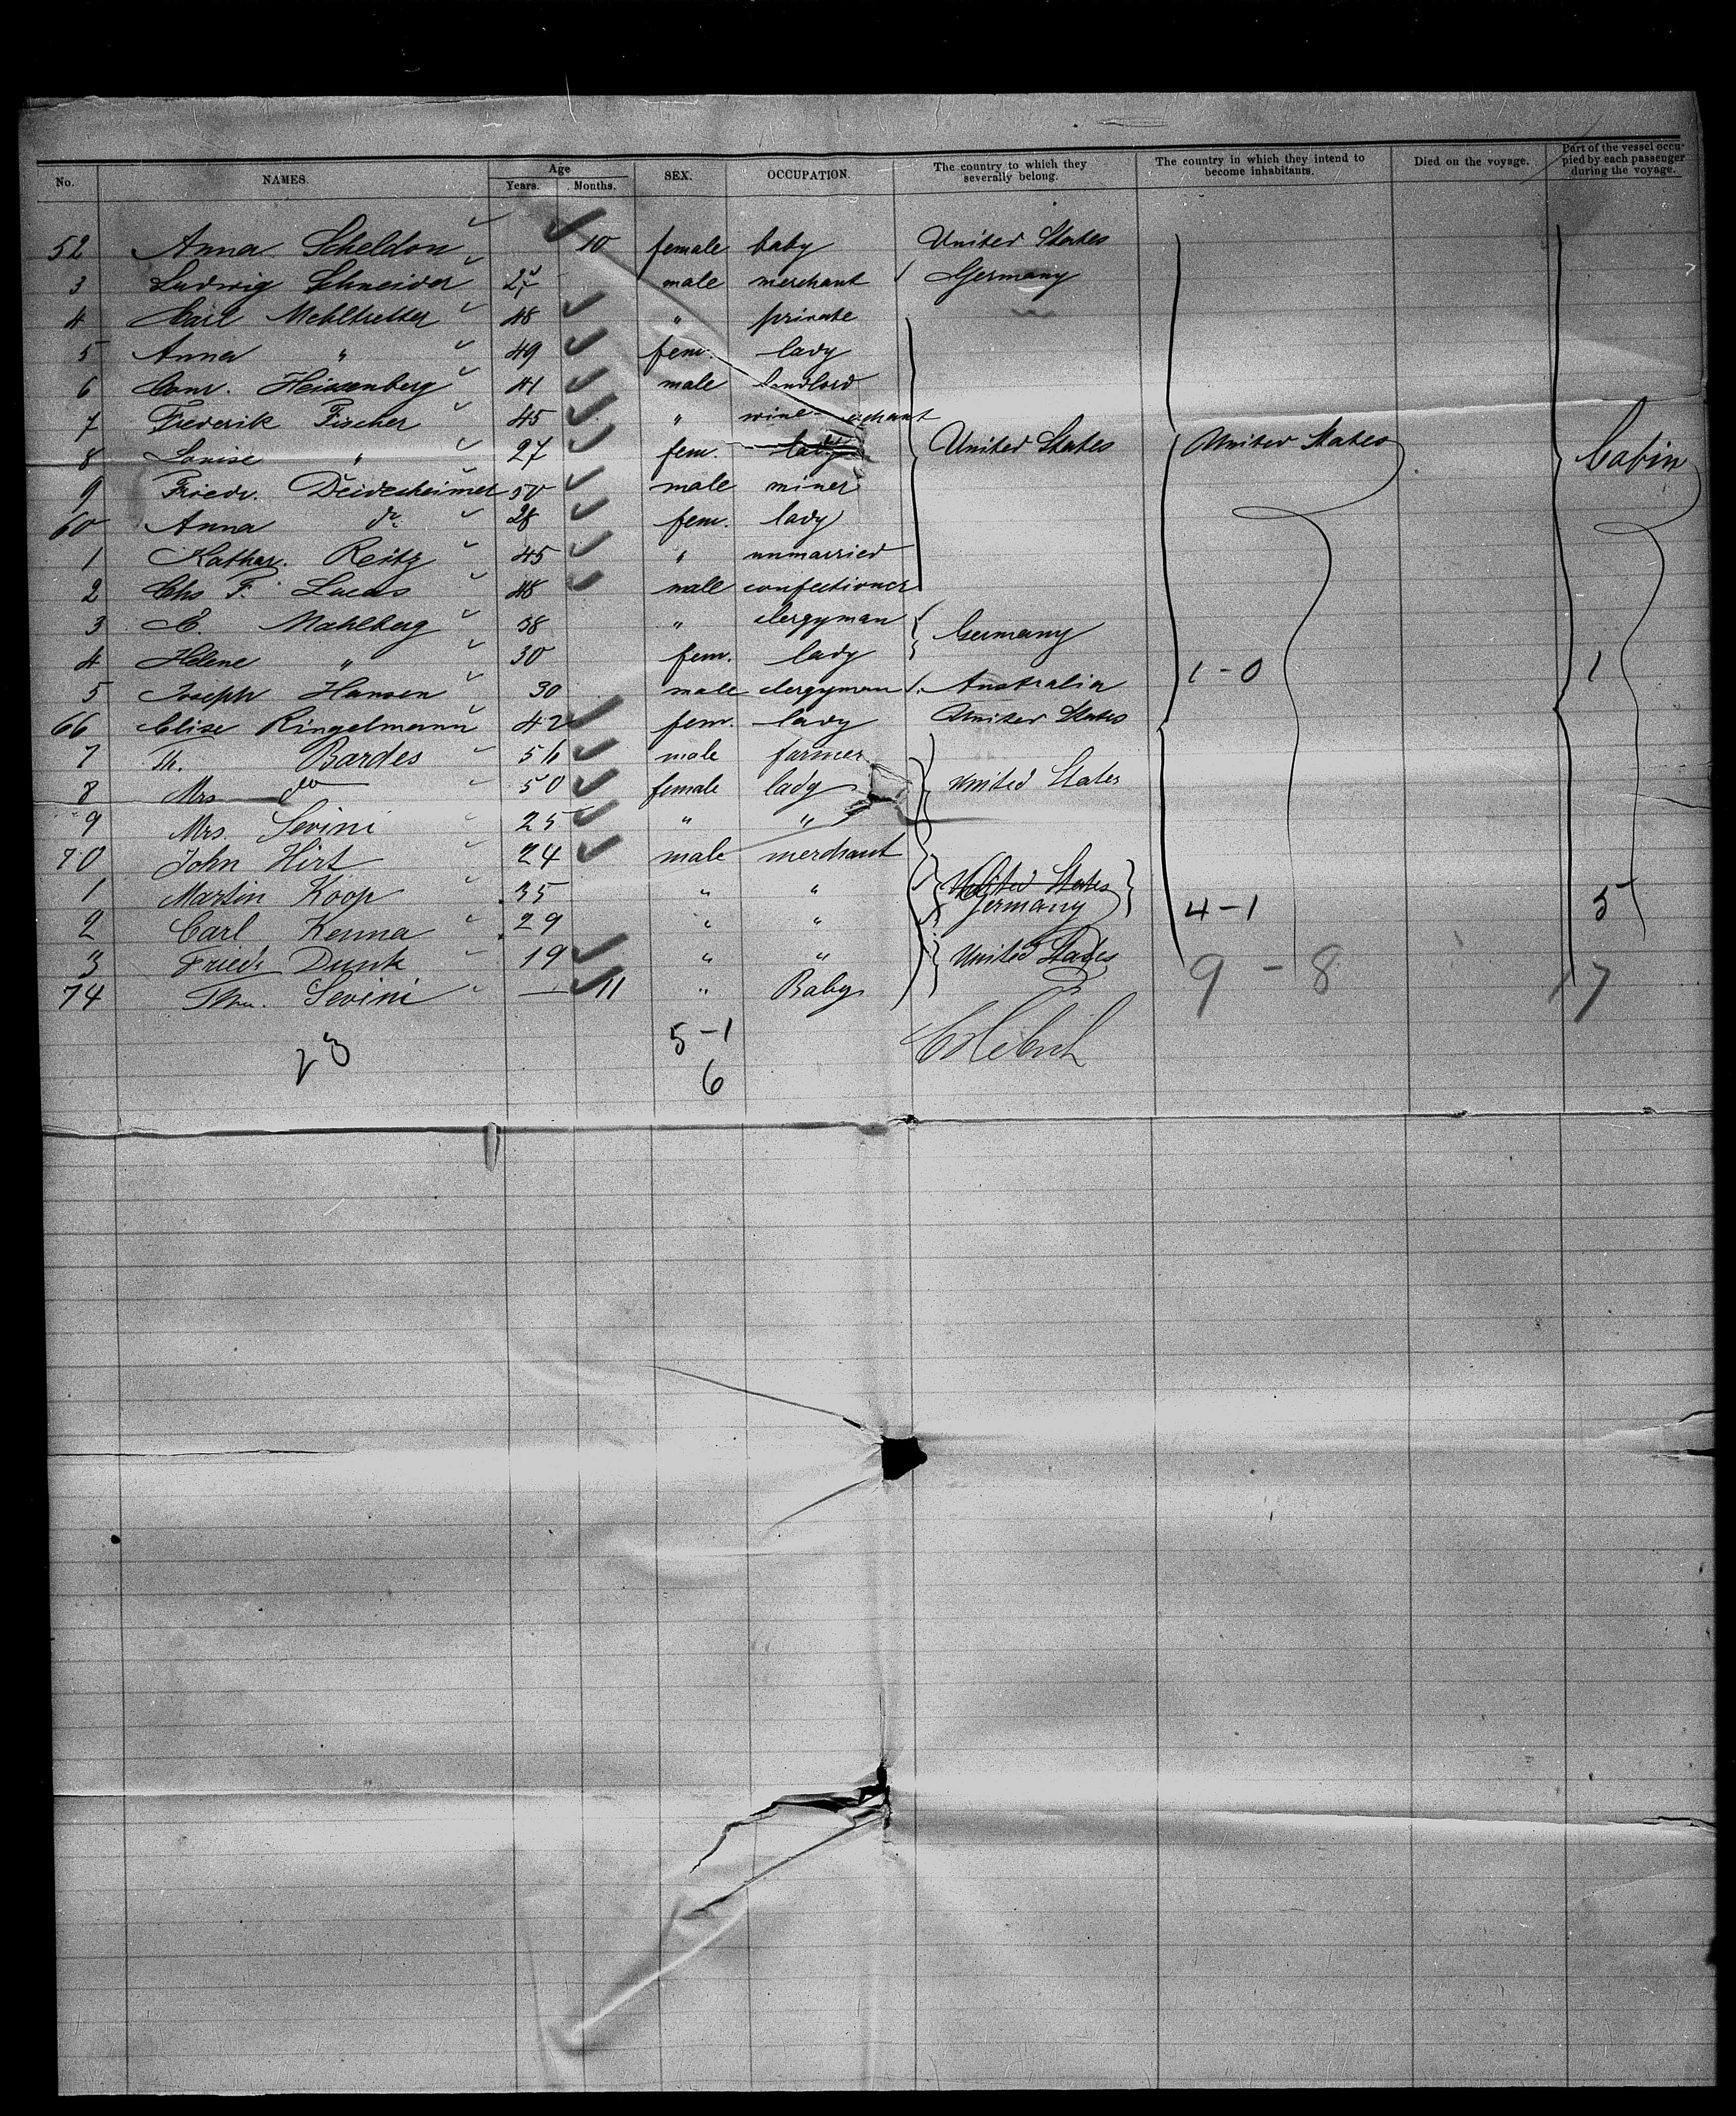 No. NAMES. Age Years. Months. SEX. OCCUPATION. The country to which they severally belong. The country in which they intend to become inhabitants. Died on the voyage. Part of the vessel occupied by each passenger during the voyage.
52 Anna Scheldon 10 female baby United States
3 Ludwig Schneider 27 male merchant Germany
4 Carl Mehltretter 48 " private
5 Anna " 49 fem. lady
6 Conr. Heissenberg 41 male landlord
7 Frederik Fischer 45 " wine
8 Louise " 27 fem. lady United States United States Cabin
9 Friedr. Deidesheimer 50 male miner
60 Anna do. 28 fem. lady
1 Kathar. Reitz 45 " unmarried
2 Chs F. Lucas 48 male confectioner
3 Mahlberg 38 " clergyman Germany
4 Helene " 30 fem. lady
5 Joseph Hansen 30 male clergyman Australia 1-0 1
66 Elise Ringelmann 42 fem. lady United States
7 Th. Bardes 56 male farmer
8 Mrs do 50 female lady United States
9 Mrs. Sevini 25 " "
70 John Hirt 24 male merchant
1 Martin Koop 35 " " United States
Germany
2 Carl Kenna 29 " " 4-1 5
3 Friedr Dunk 19 " " United States
74 Sevini — 11 " Baby 9-8 17
23 5-1
6